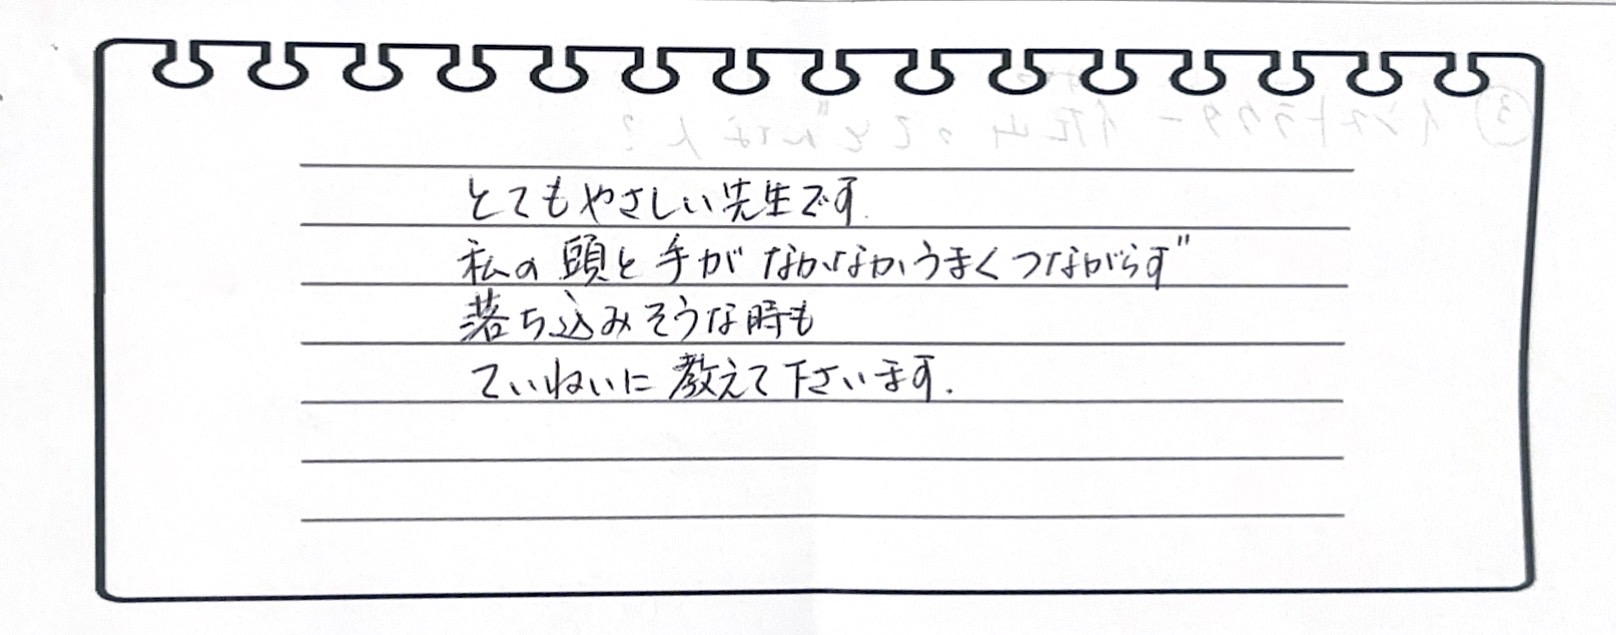 とてもやさしい先生です.
私の頭と手がなかなかうまくつながらず
落ち込みそうな時も
ていねいに教えて下さいます.